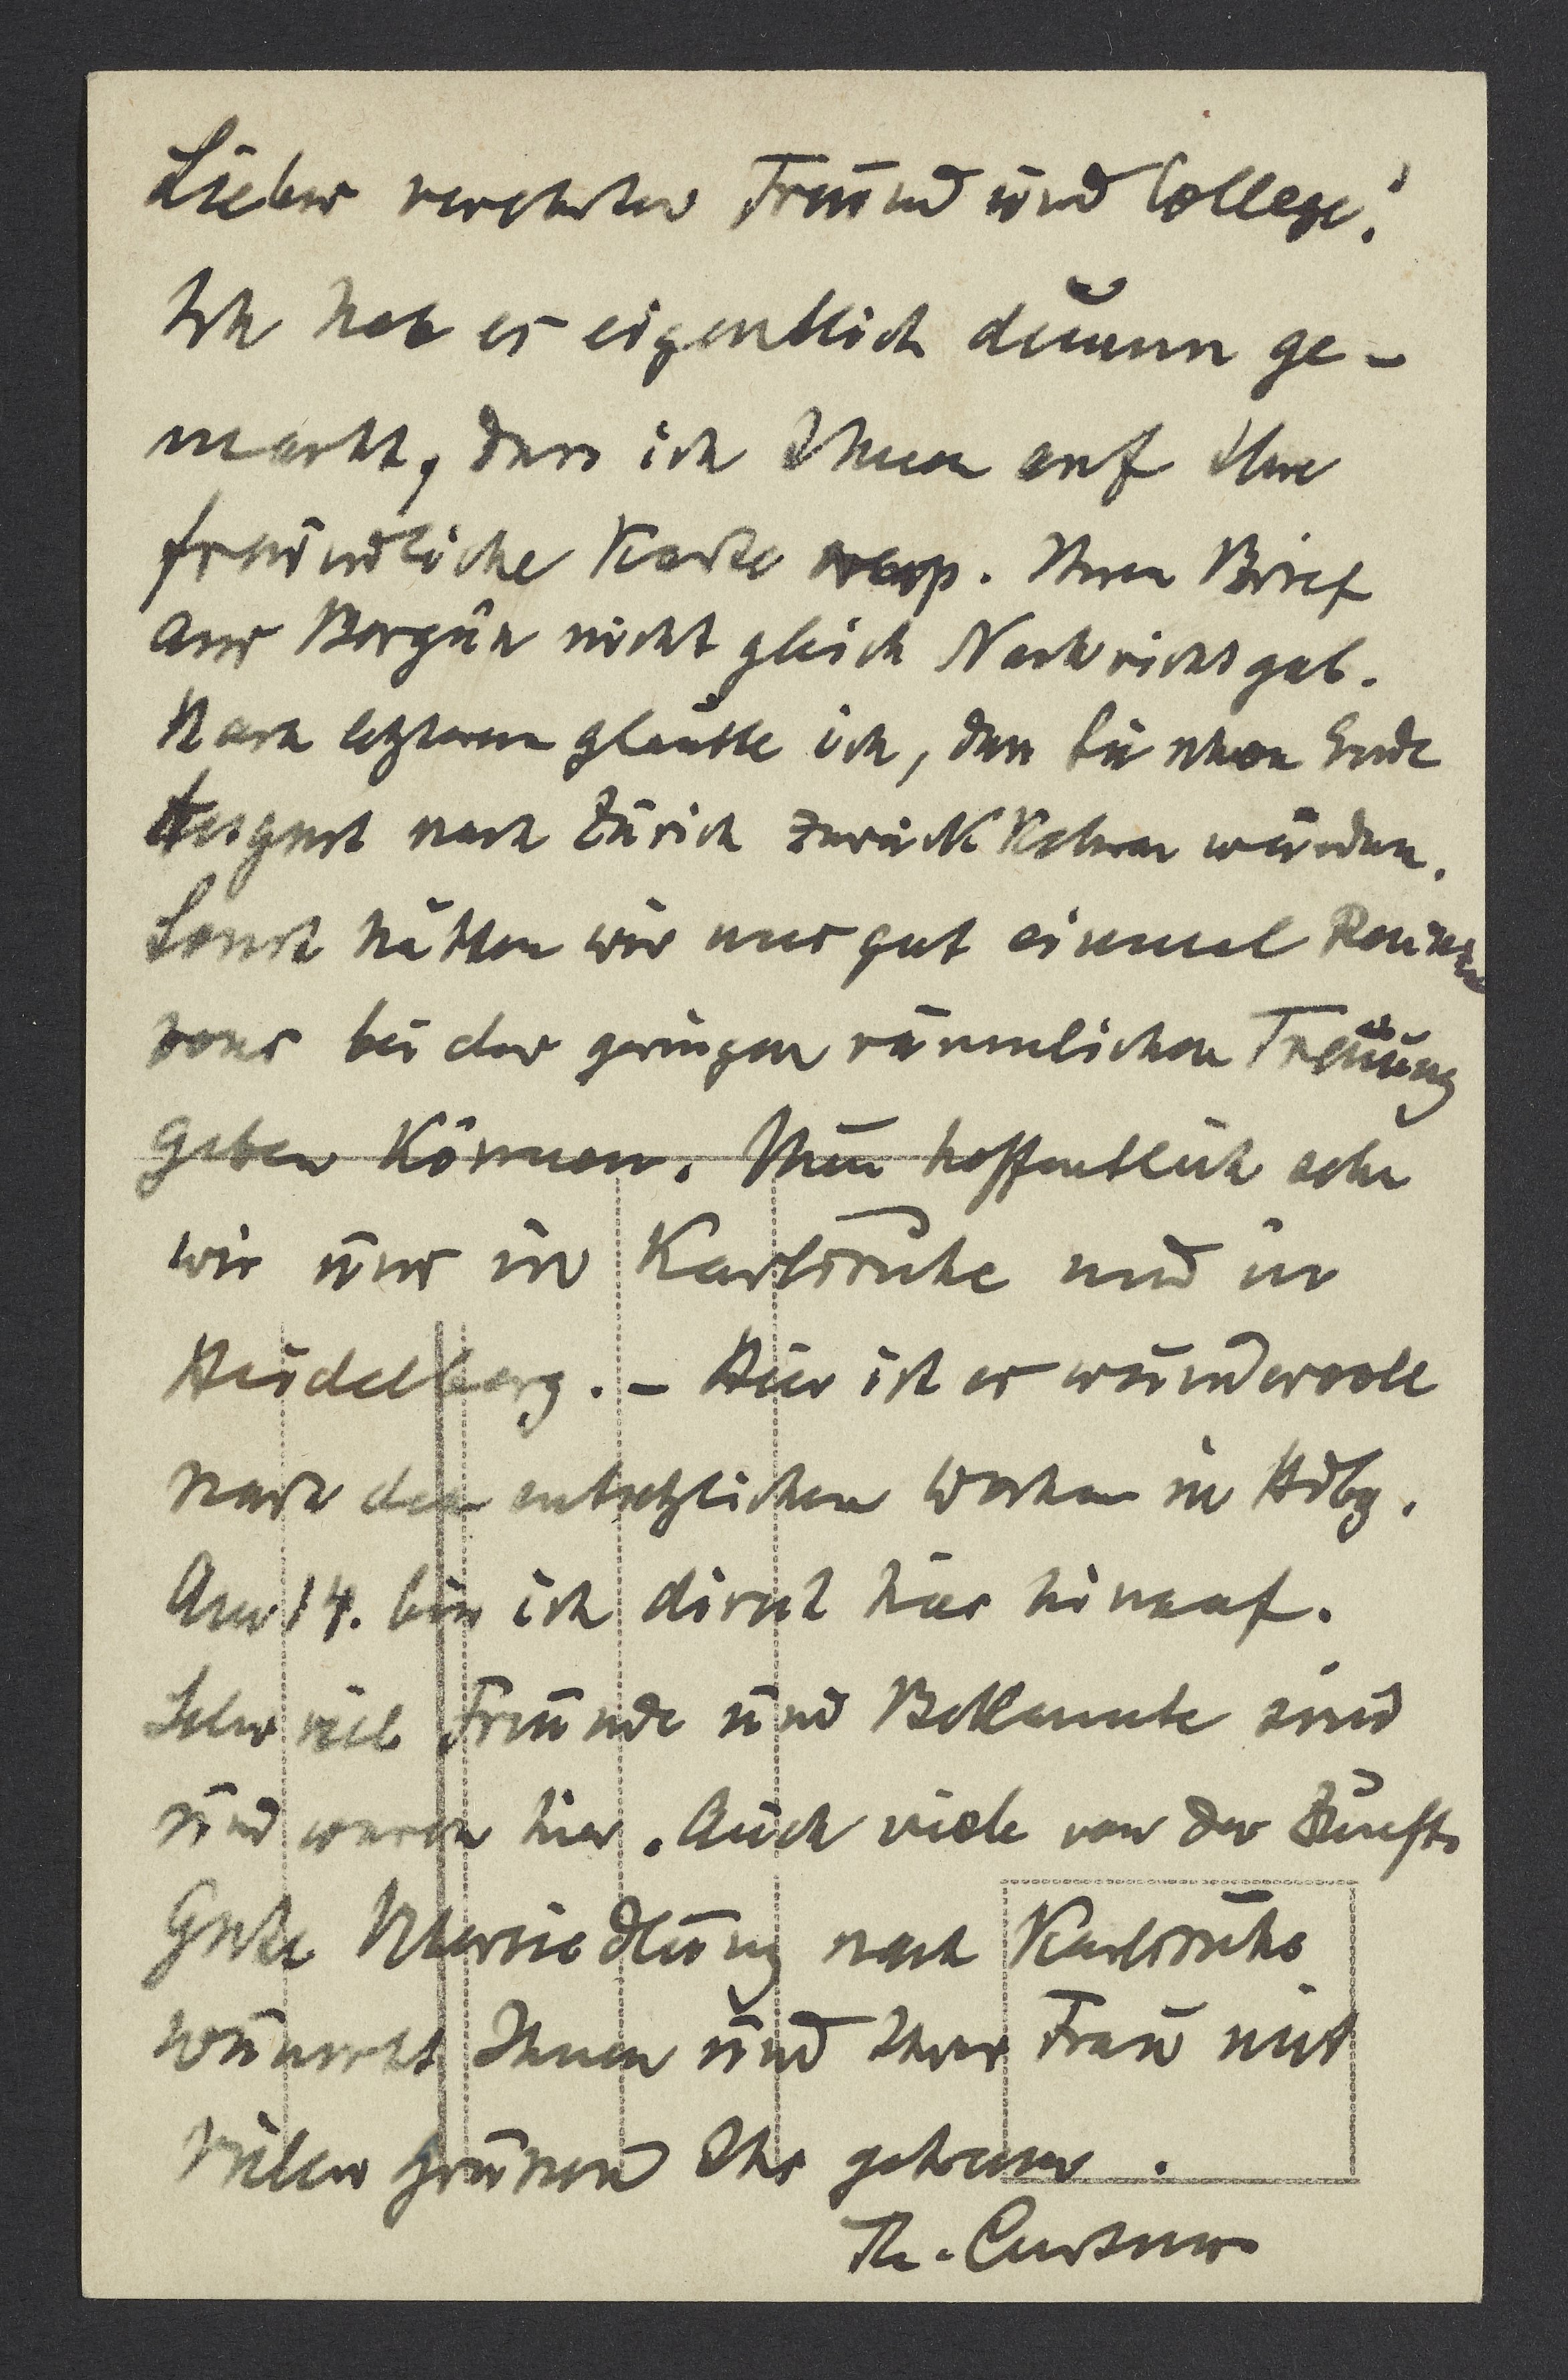 Lieber verehrter Freund und College!
Ich hab es eigentlich dumm ge-
macht, dass ich Ihnen auf Ihre
freundliche Karte resp. Ihren Brief
aus Bergün nicht gleich Nachricht gab.
Nach letzterem glaubte ich, dass Sie schon Ende
August nach Zürich zurückkehren würden.
Sonst hätten wir uns gut einmal Rendez-
vous bei der geringen räumlichen Trennung
geben können. Nun hoffentlich sehn
wir uns in Karlsruhe und in
Heidelberg. – Hier ist es wundervoll
nach den entsetzlichen Wochen in Hdbg.
Am 14. bin ich direct hier hinauf.
Sehr viele Freunde und Bekannte sind
und waren hier. Auch viele von der Zunft.
Gute Übersiedlung nach Karlsruhe
wünscht Ihnen und Ihrer Frau mit
vielen Grüssen Ihr getreuer.
Th. Curtius